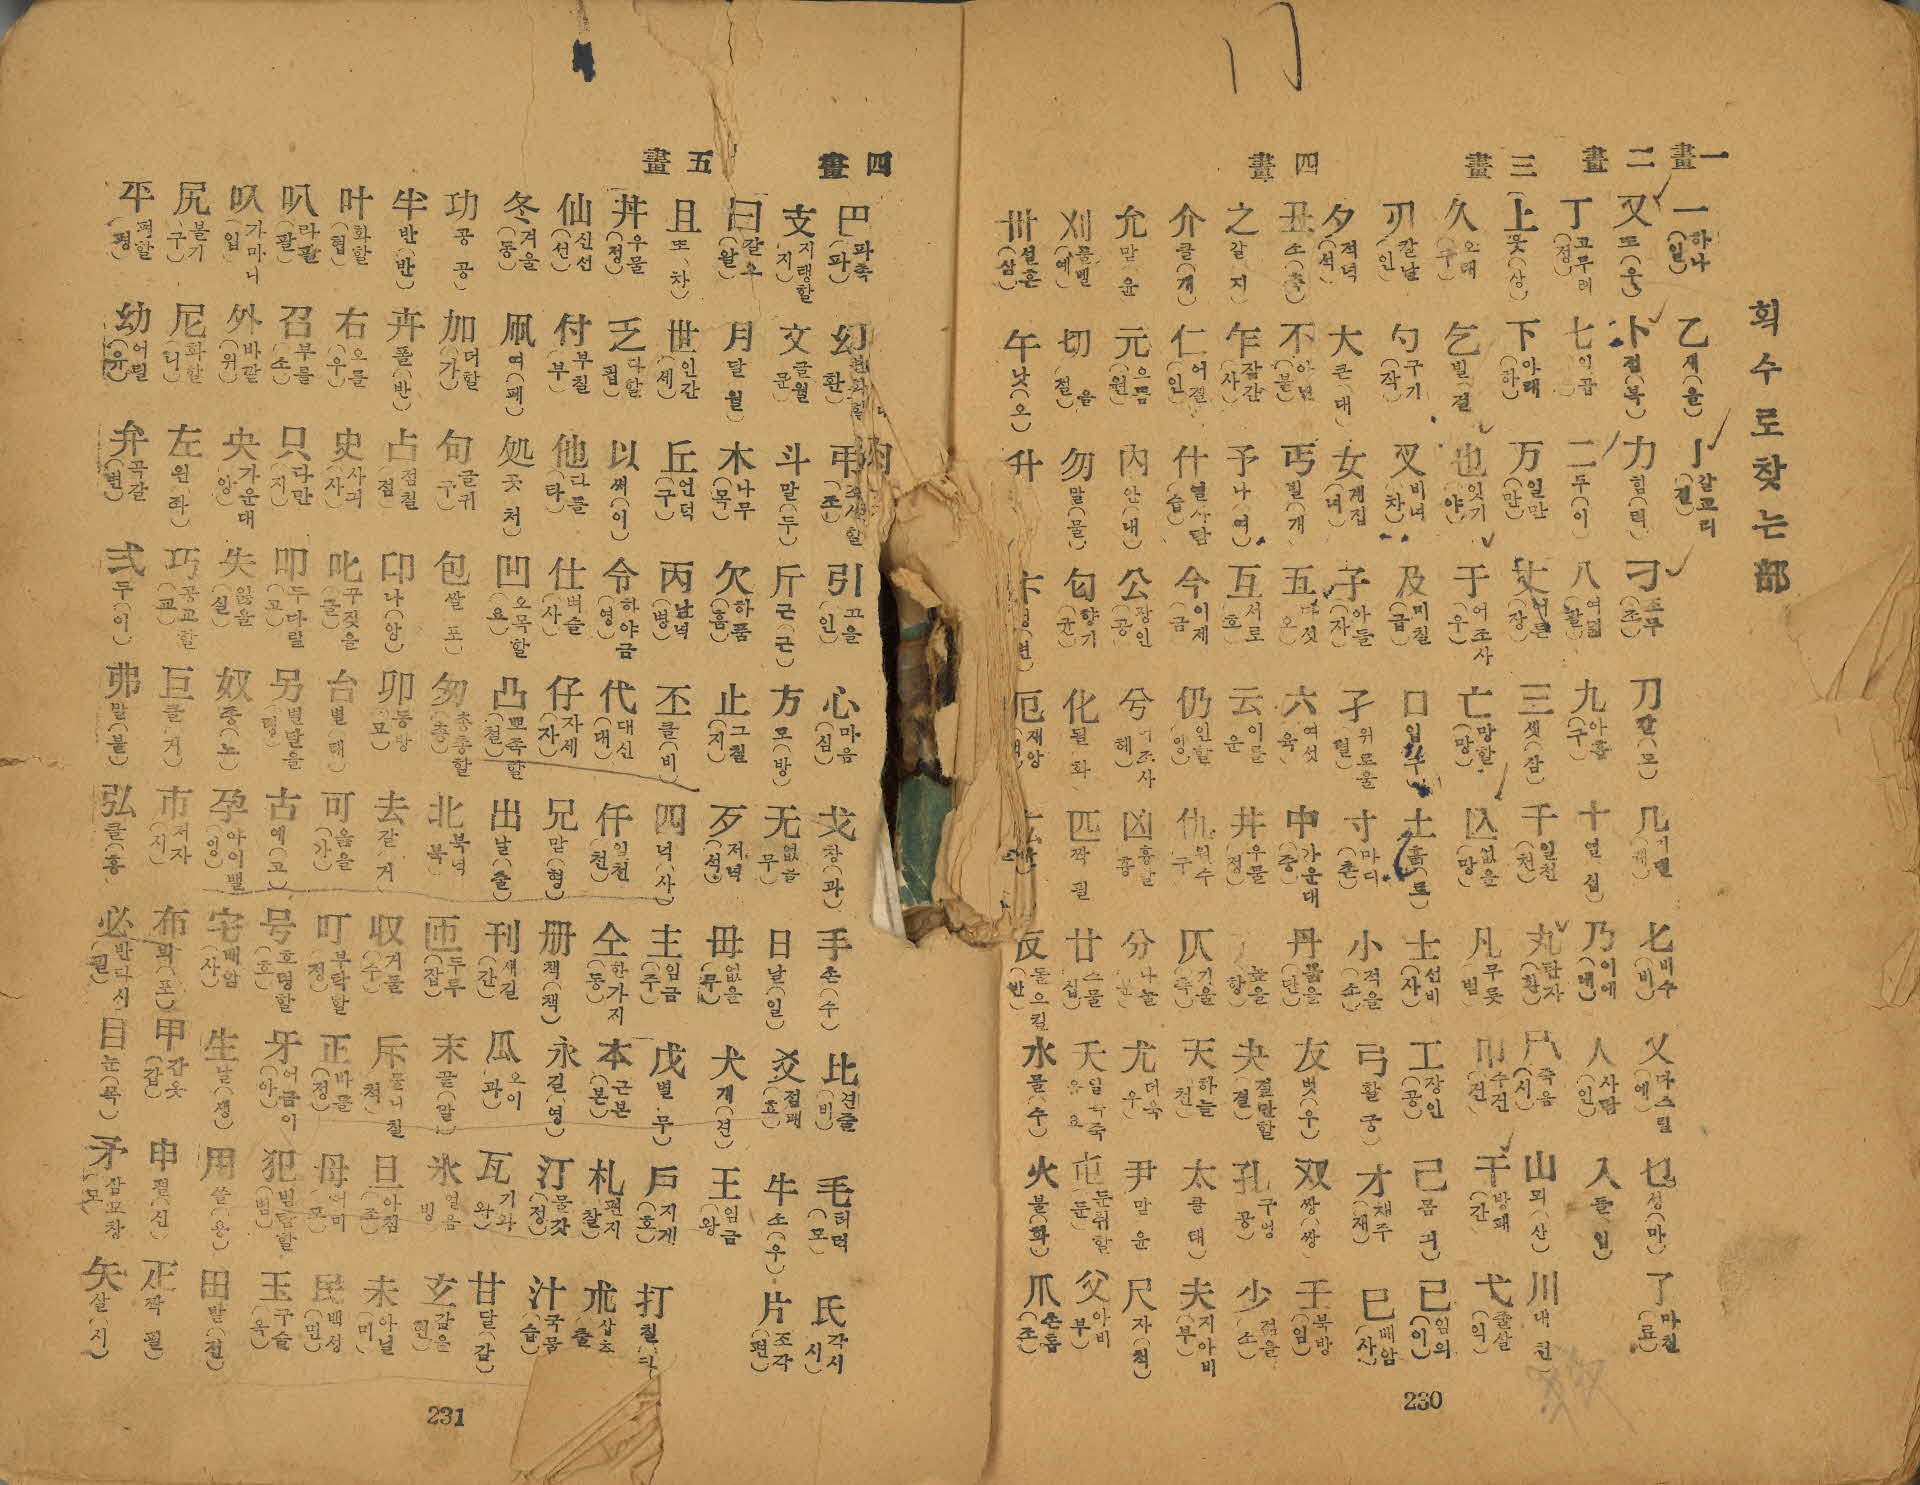 획수로찾는部
一畫 一 하나(일) 乙 새(을) 亅 갈고리(궐)
二畫 又 또(우) 卜 점(복) 力 힘(력) 刁 조두(조) 刀 칼(도) 几 匕 비수(비) 乂 다스릴(예) 乜 성(마) 了 마칠(료)
丁 고무래(정) 七 일곱 二 두(이) 八 여덟(팔) 九 아홉(구) 十 열 십 乃 이에(내) 人 사람(인) 入 들 입)
三畫 上 웃(상) 下 아래(하) 万 일만(만) 丈 어른(장) 三 셋(삼) 千 일천(천) 丸 탄자(환) 尸 죽음(시) 山 뫼(산) 川 내 천)
久 오래(구) 乞 빌(걸 也 잇기(야) 于 어조사(우) 亡 망할(망) 亾 없을(망) 凡 무릇 범 巾 수건(건) 干 방패(간) 弋 줄살(익)
刃 칼날(인) 勺 구기(작) 叉 비녀(차) 及 미칠(급) 口 입(구) 土 흙(토) 士 선비(사) 工 장인(공) 己 몸 기) 已 임의(이)
四畫 夕 저녁(석) 大 큰(대) 女 계집(녀) 子 아들(자) 孑 외로울(혈) 寸 마디(촌) 小 적을(소) 弓 활 궁) 才 재주(재) 巳 배암(사)
丑 소(축) 不 아닐(불) 丐 빌(개 五 다섯 오 六 여섯 육 中 가운대(중) 丹 붉을(단) 友 벗(우) 双 쌍(쌍) 壬 북방(임)
之 갈 지) 乍 잠간(사) 予 나(여) 互 서로 호 云 이를 운 井 우물(정) 亢 높을(항) 夬 결단할(결) 孔 구멍 공 少 젊을(소)
介 클(개) 仁 어질(인) 什 열사람(습) 今 이제(금) 仍 인할(잉) 仇 원수 구 仄 기울(측) 天 하늘(천) 太 클 태) 夫 지아비(부)
允 맏 윤 元 으뜸(원) 內 안(내) 公 장인(공) 兮 어조사(혜) 凶 흉할 흉 分 나눌 尤 더욱 우 尹 맏 윤 尺 자(척)
刈 풀벨(예) 切 勿 말(물) 匂 향기(균) 化 될 화 匹 짝 필 廿 스물(십) 夭 屯 둔취할(둔) 父 아비(부)
卅 설흔(삼) 午 낮(오) 升 卞 厄 재앙 反 돌으킬(반) 水 물(수) 火 불(화) 爪 손톱(조)
230
四畫 巴 파촉(파) 幻 환) 弔 조상할(조) 引 끄을(인) 心 마음(심) 戈 창(과) 手 손(수) 比 견줄(비) 毛 터럭(모) 氏 각시(시)
支 지탱할(지) 文 글월 문 斗 말(두) 斤 근(근) 方 모(방) 无 없을 무 日 날(일) 爻 점괘(효) 牛 소(우) 片 조각(편)
曰 갈오(왈) 月 달 월) 木 나무(목) 欠 하품(흠) 止 그칠(지) 歹 저녁(석) 毋 없을(무) 犬 개(견) 王 임금 왕
五畫 且 또(차) 世 인간(세) 丘 언덕(구) 丙 남녁(병) 丕 클(비) 四 넉(사) 主 임금(주) 戊 별 무) 戶 지게(호) 打 칠(타
丼 우물(정) 乏 다할(핍) 以 써(이) 令 하야금(영) 代 대신(대) 仟 일천(천) 仝 한가지(동) 本 근본(본) 札 편지(찰) 朮 삽초(출
仙 신선(선) 付 부칠(부) 他 다를(타) 仕 벼슬(사) 仔 자세(자) 兄 맏(형) 册 책(책) 永 길(영) 汀 물갓(정) 汁 국물(습)
冬 겨울(동) 凧 여(패) 処 곳 처) 凹 오목할(요) 凸 뾰족할(철) 出 날(출) 刊 새길(간) 瓜 오이(과) 瓦 기와(와) 甘 달(감)
功 공 공) 加 더할(가) 句 글귀(구 包 쌀 포) 匆 총총할(총) 北 북녁 북 匝 두루(잡) 末 끝(말) 氷 얼음 빙 玄 감을(현
半 반(반) 卉 풀(반) 占 점칠(점) 卬 나(앙) 卯 동방(묘) 去 갈 거) 収 거둘(수) 斥 물니칠(척 旦 아침(조) 未 아닐(미
叶 화할(협) 右 오를(우) 史 사긔(사 叱 꾸짖을(즐 台 별(태) 可 옳을(가) 叮 부탁할(정 正 바를(정) 母 어미(모 民 백성(민)
叭 라팔(팔) 召 부를(소) 只 다만(지) 叩 두다릴(고) 另 별 古 예(고) 号 호령할(호) 牙 어금이(아) 犯 범할 범 玉 구슬(옥)
叺 가마니(입) 外 바깥(외) 央 가운대(앙) 失 잃을(실) 奴 종(노) 孕 아이밸(잉) 它 배암(사) 生 날(생) 用 쓸(용) 田 밭(전)
尻 볼기(구) 尼 화할(니) 左 왼 좌) 巧 공교할(교) 巨 클 거) 市 저자(시) 布 뵈(포) 甲 갑옷(갑) 申 펼(신) 疋 짝 필)
平 펴할(평) 幼 어릴(유) 弁 곡갈(변) 弍 두(이) 弗 말(불) 弘 클(홍) 必 반다시(필) 目 눈(목) 矛 삼모창(모) 矢 살(시)
231